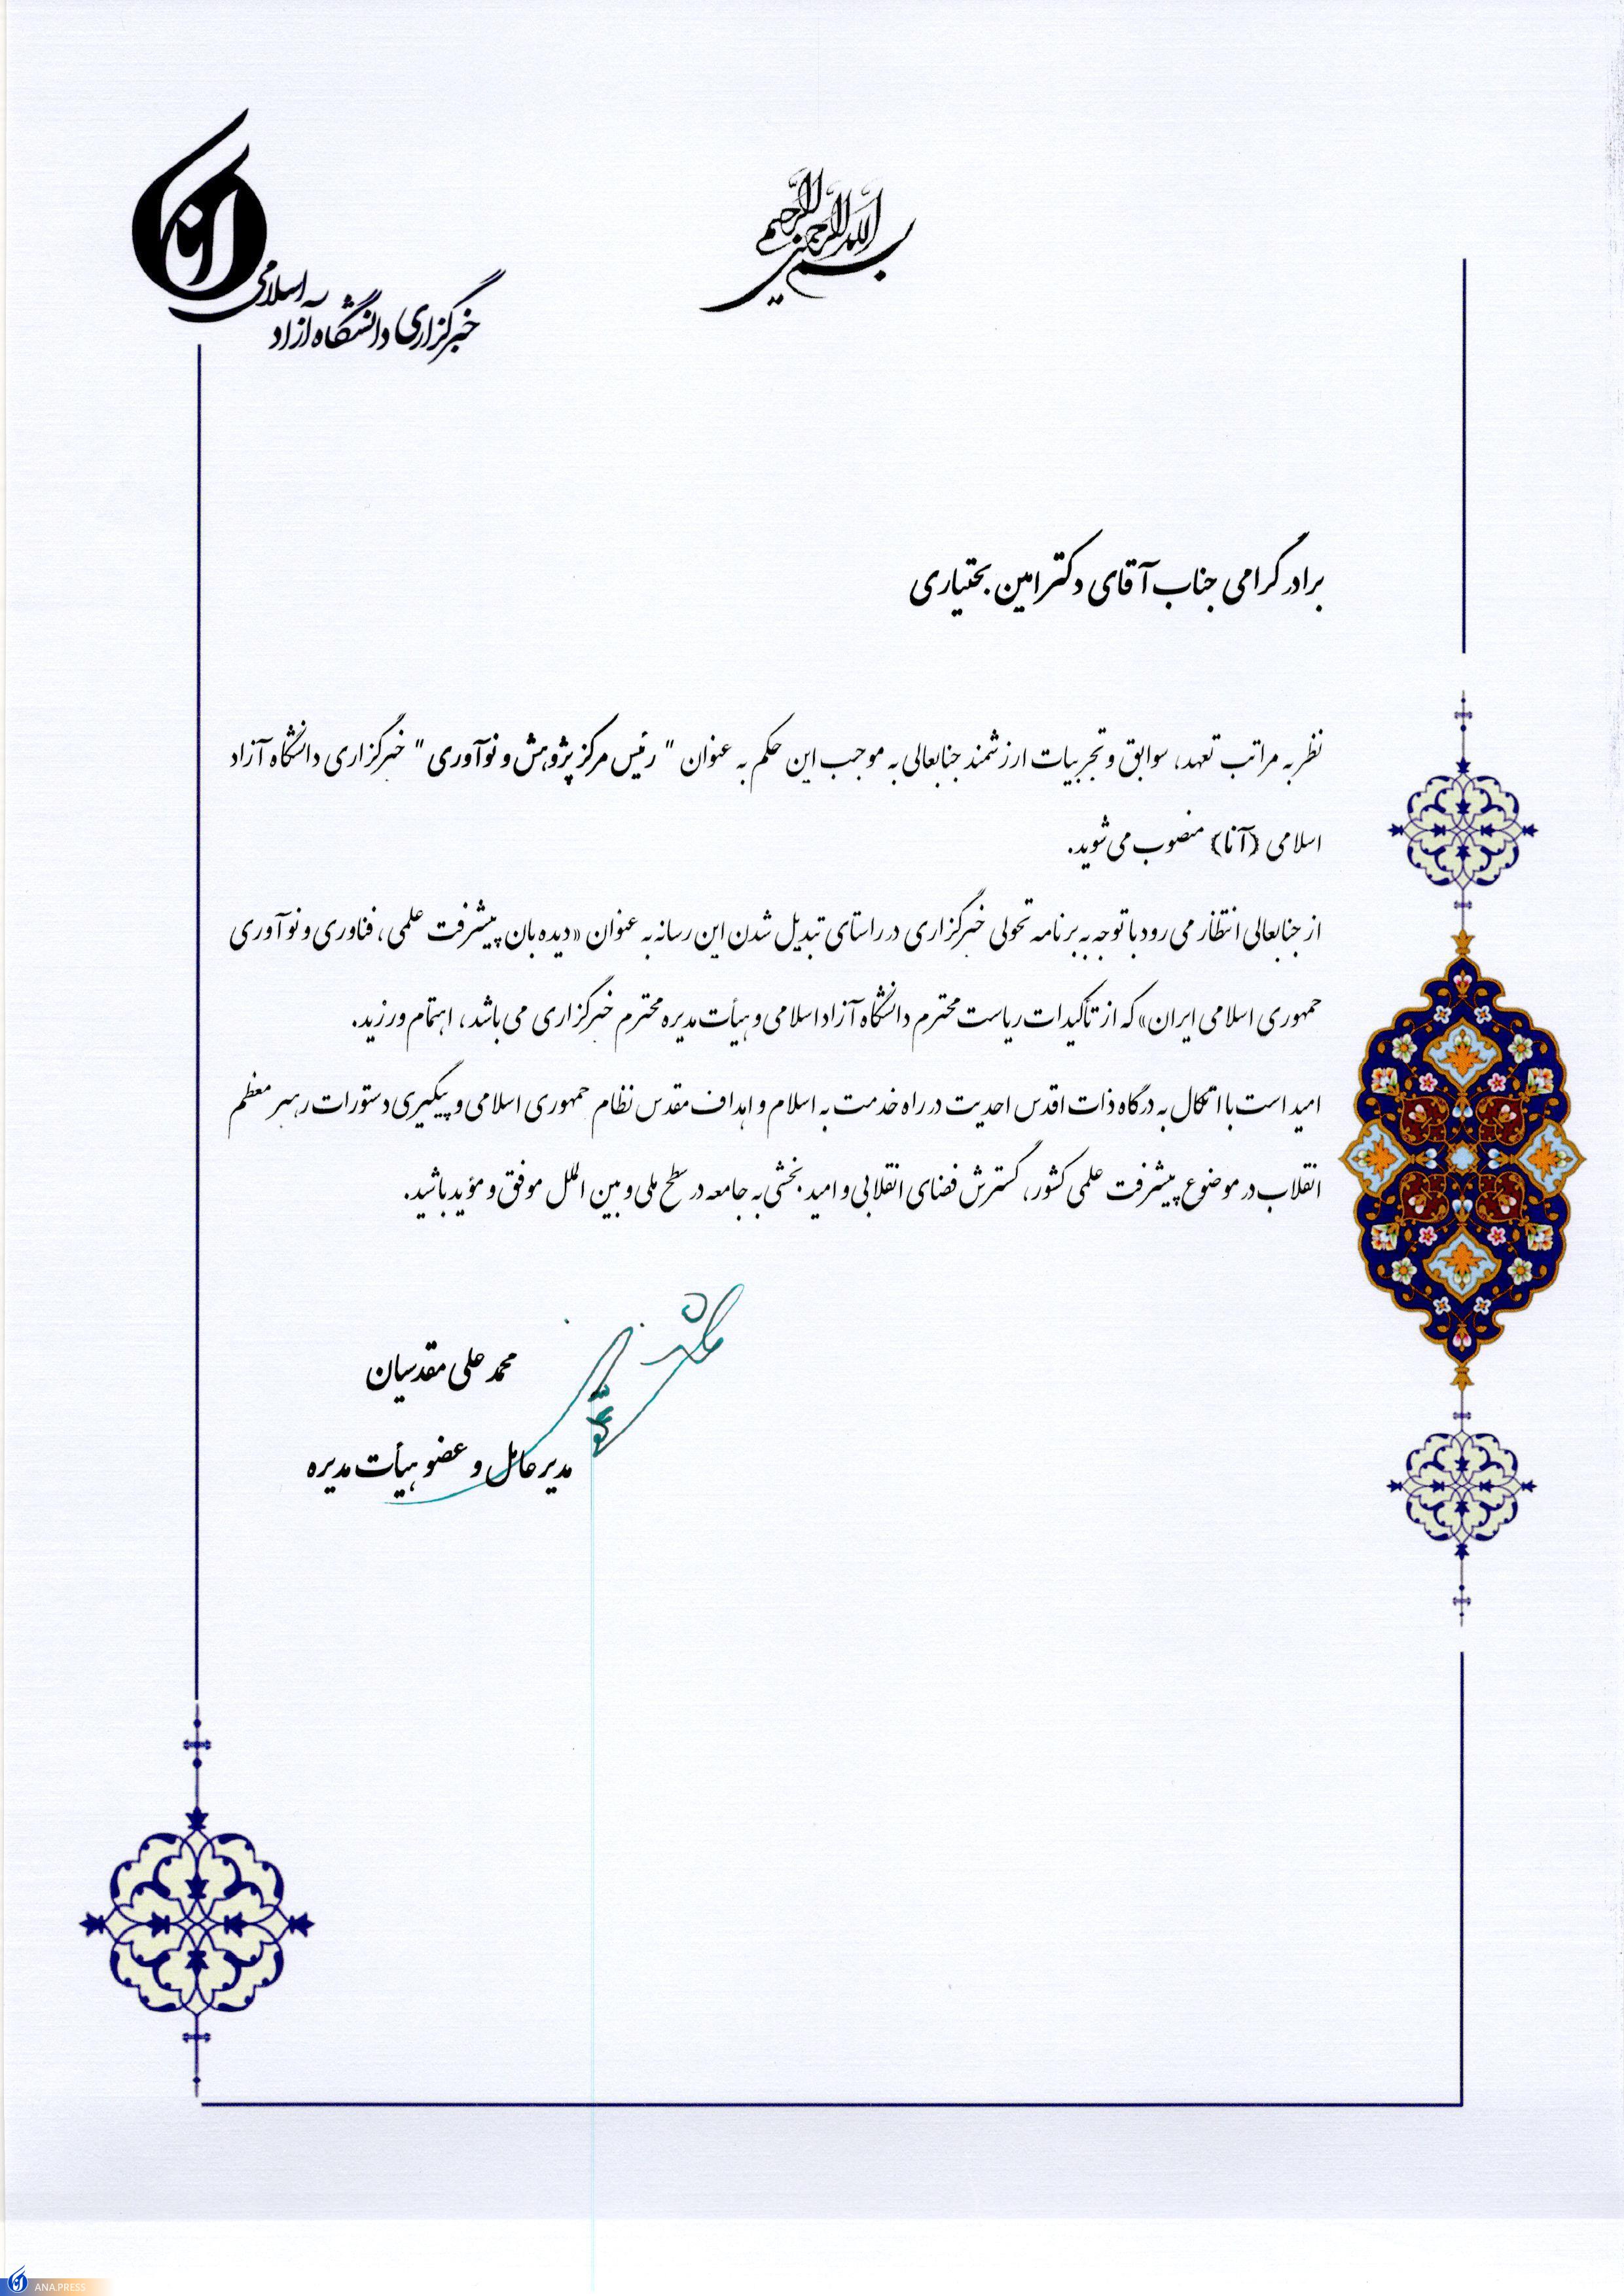 بسم الله الرحمن الرحیم
آنا
خبرگزاری دانشگاه آزاد اسلامی
برادر گرامی جناب آقای دکتر امین بختیاری
نظر به مراتب تعهد، سوابق و تجربیات ارزشمند جنابعالی به موجب این حکم به عنوان " رئیس مرکز پژوهش و نوآوری " خبرگزاری دانشگاه آزاد
اسلامی (آنا) منصوب می‌شوید.
از جنابعالی انتظار می رود با توجه به برنامه تحولی خبرگزاری در راستای تبدیل شدن این رسانه به عنوان «دیده بان پیشرفت علمی، فناوری و نوآوری
جمهوری اسلامی ایران» که از تأکیدات ریاست محترم دانشگاه آزاد اسلامی و هیأت مدیره محترم خبرگزاری می باشد، اهتمام ورزید.
امید است با اتکال به درگاه ذات اقدس احدیت در راه خدمت به اسلام و اهداف مقدس نظام جمهوری اسلامی و پیگیری دستورات رهبر معظم
انقلاب در موضوع پیشرفت علمی کشور، گسترش فضای انقلابی و امید بخشی به جامعه در سطح ملی و بین الملل موفق و مؤید باشید.
محمد علی مقدسیان
مدیر عامل و عضو هیأت مدیره
آنا ANA.PRESS